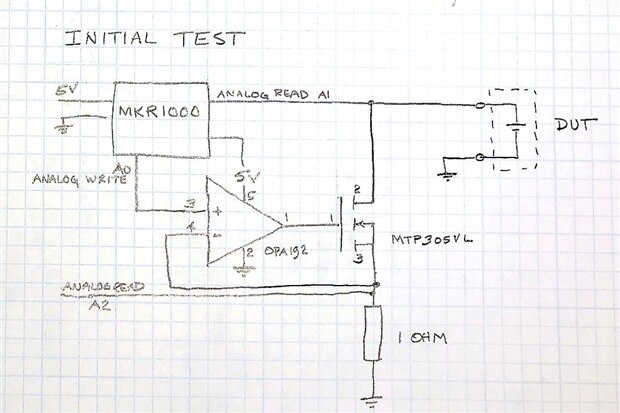 INITIAL TEST
5V
MKR1000
ANALOG READ A1
DUT
A0
ANALOG WRITE
5V
5
3
+
4
-
1
1
2
3
2
OPA192
MTP305VL
ANALOG READ
A2
1 OHM